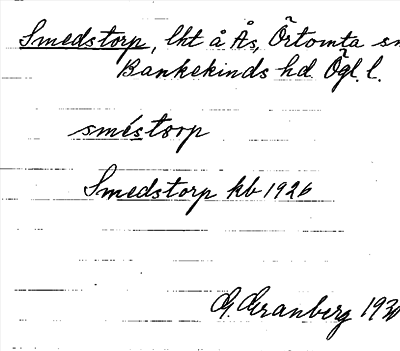 Smedstorp, lht å Ås, Örtomta sn
Bankekinds hd. Ögl. l.
sméstorp
Smedstorp kb 1926
G. Granberg 1930